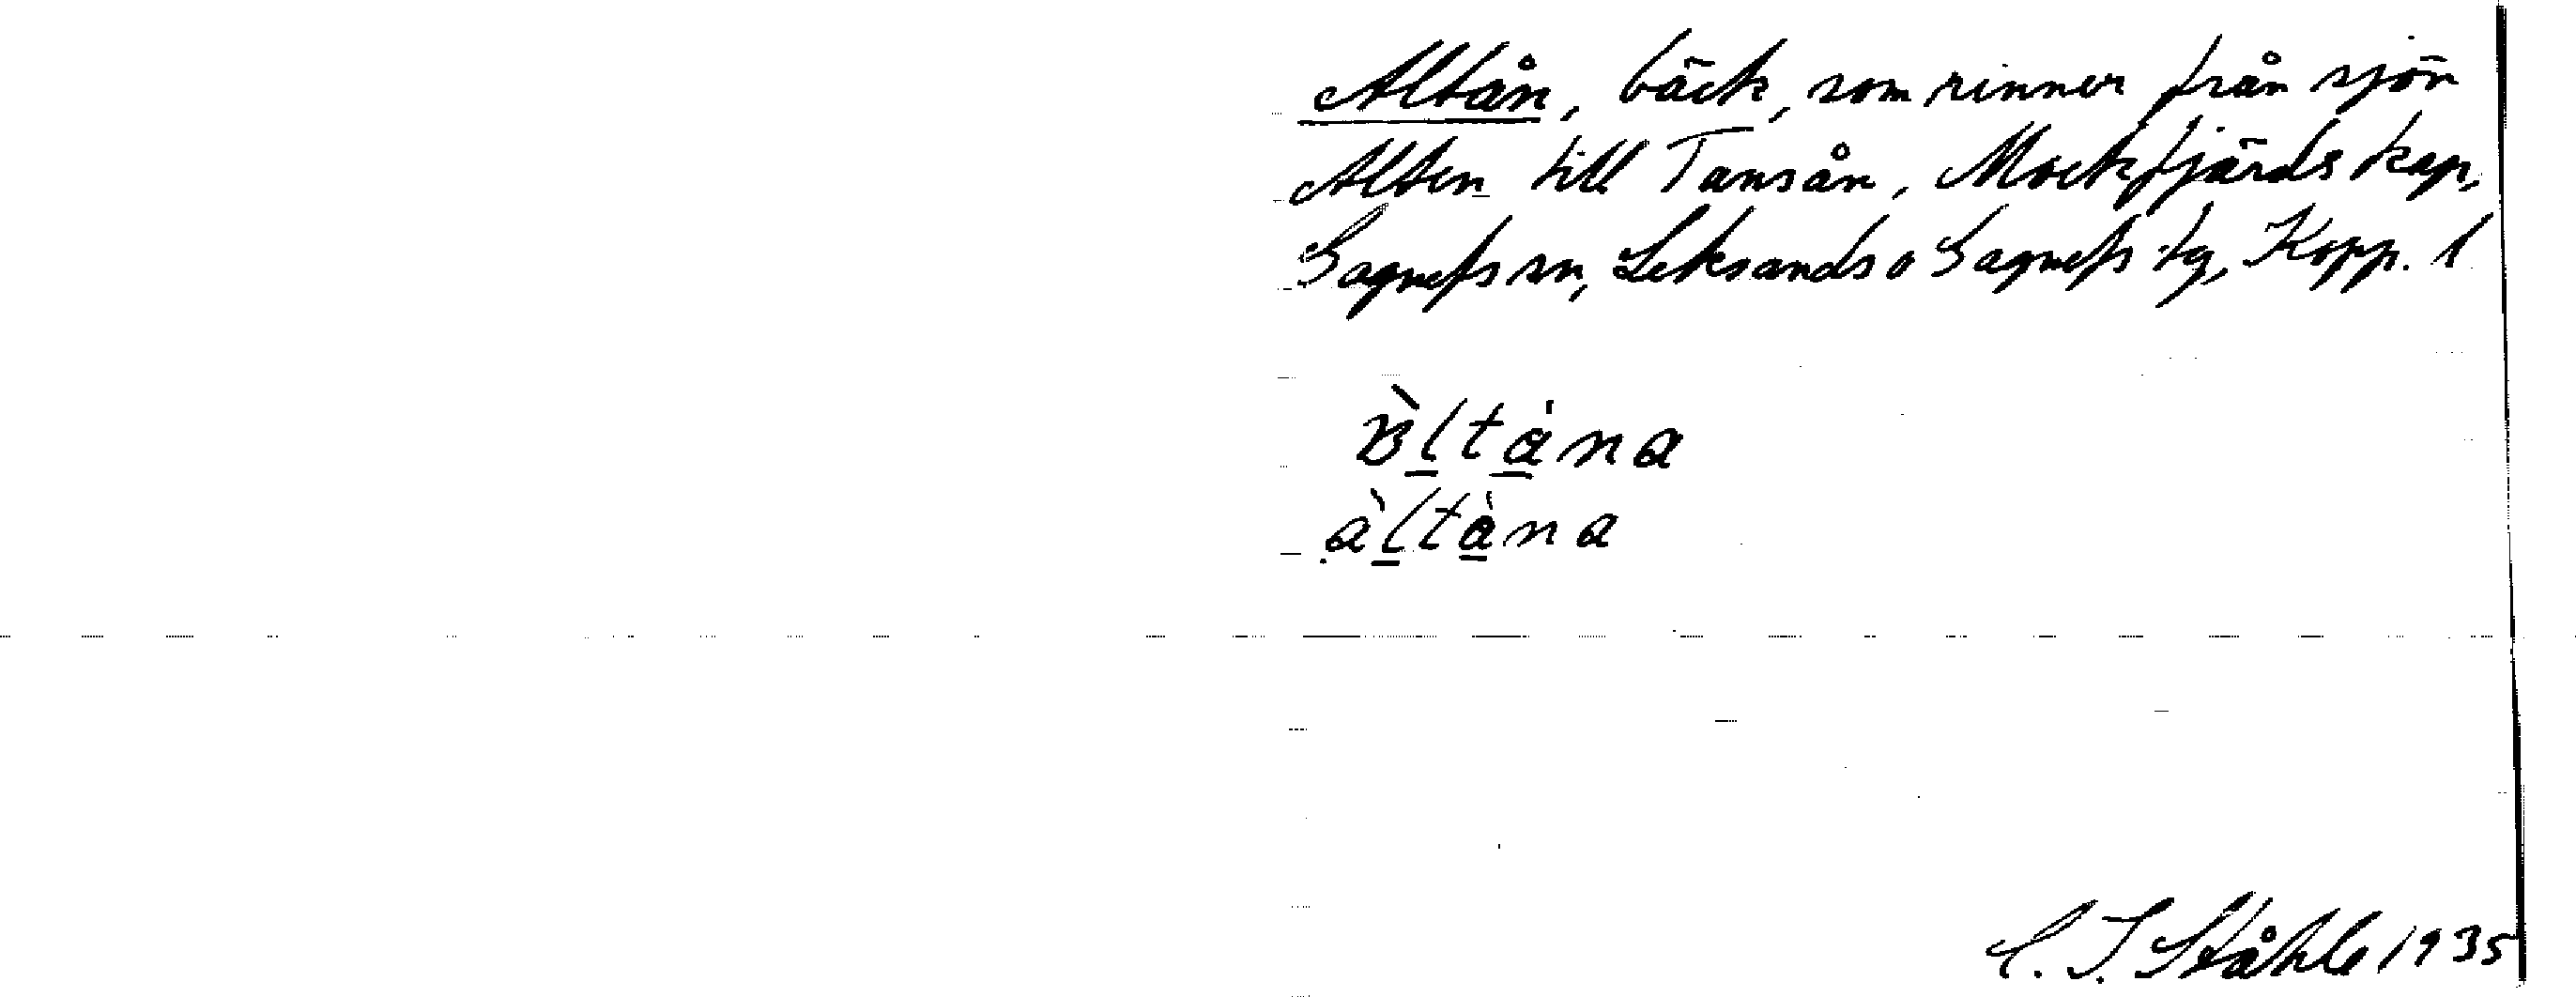 Altån, bäck, som rinner från sjön
Alten till Tansån, Mockfjärds kap,
Gagnefs sn, Leksands o Gagnefs tg, Kopp. l
àltàna
C. I. Ståhle 1935